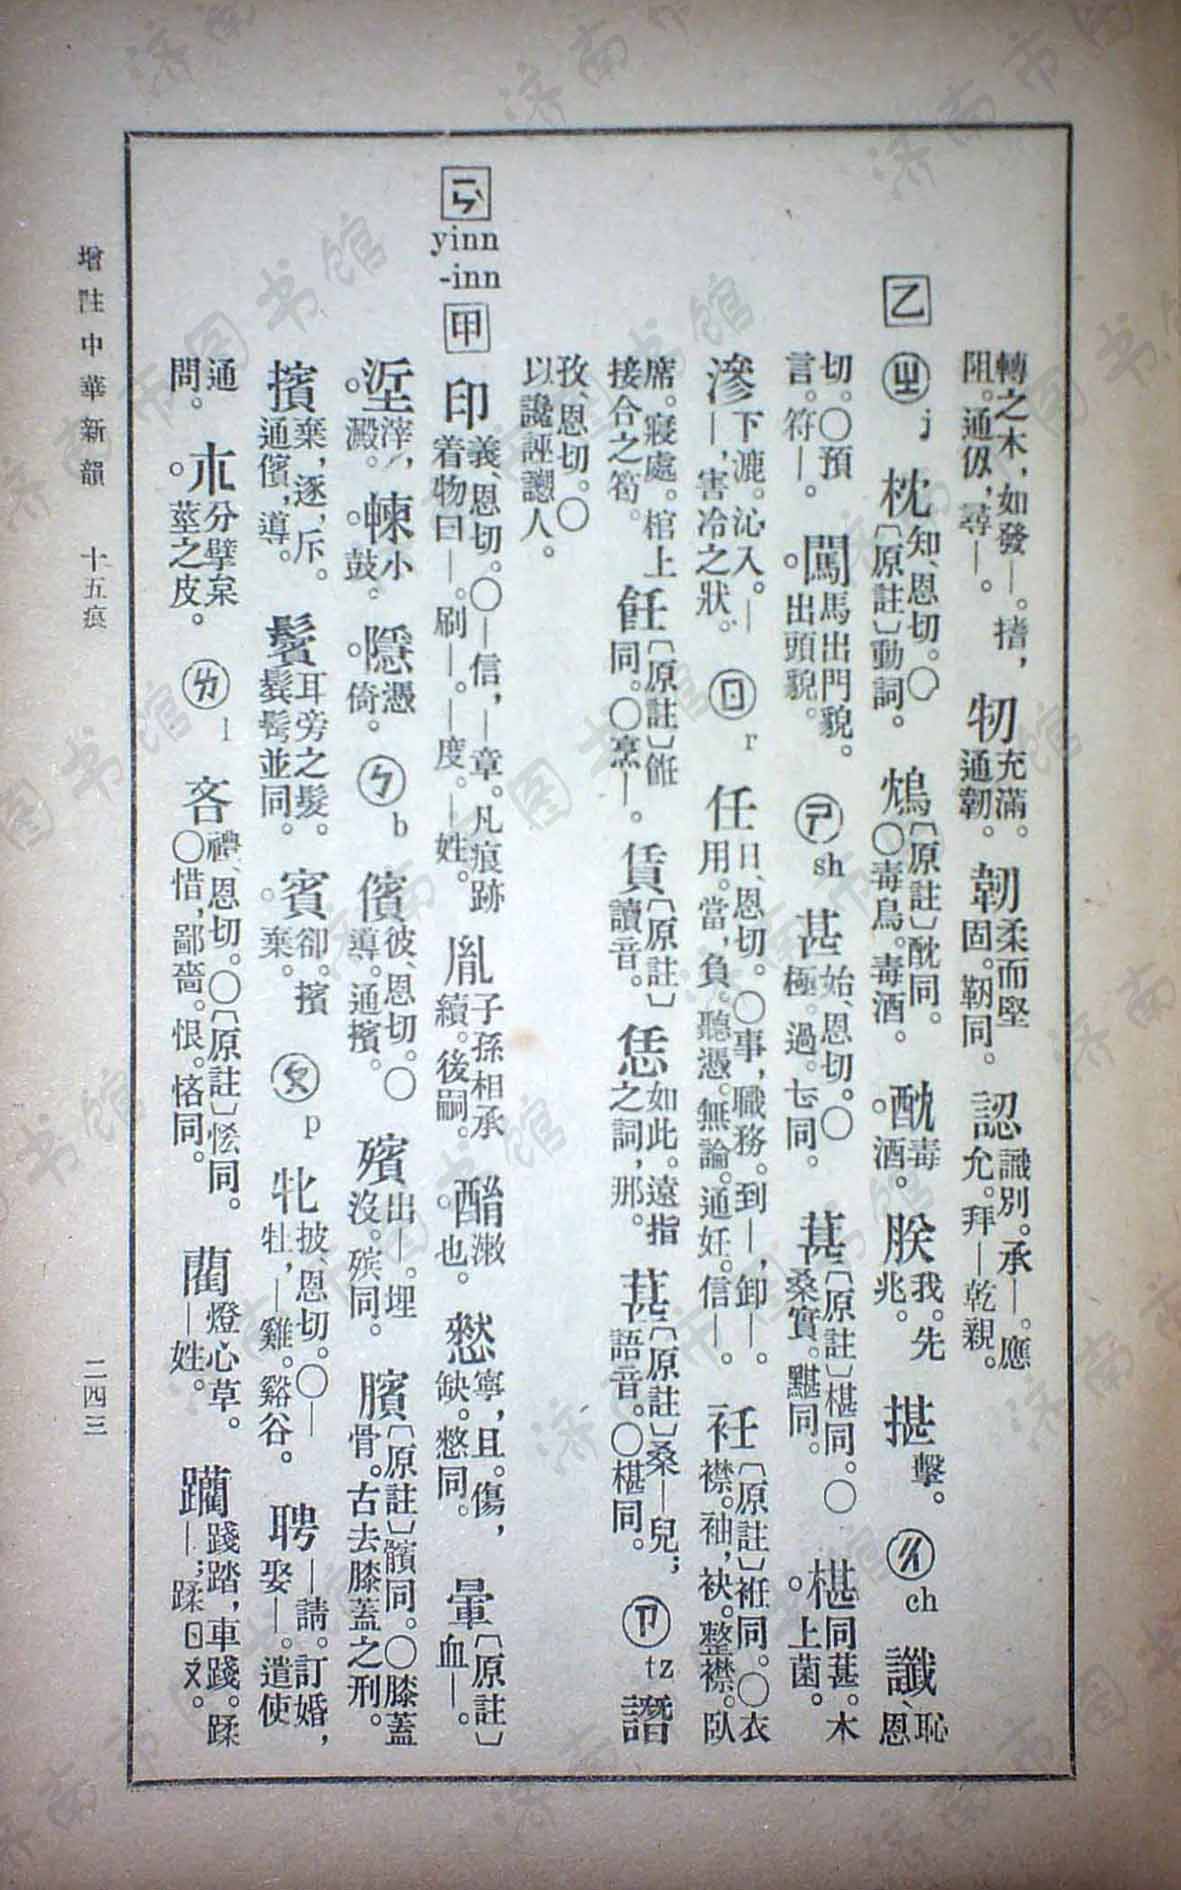 轉之木，如發—。搢，阻。通仭，尋—。 牣充滿。通韌。 韌柔而堅固。靭同。 認識別。承—。應允。拜—乾親。
乙 ㄓ j 枕知、恩切。〇〔原註〕動詞。 鴆〔原註〕酖同。〇毒鳥。毒酒。 酖毒酒。 朕我。先兆。 揕擊。 ㄔ ch 讖恥、恩
切。〇預言。符—。 闖馬出門貌。出頭貌。 ㄕ sh 甚始、恩切。〇極。過。同。 葚〔原註〕椹同。〇桑實。黮同。 椹同葚。木上菌。
滲下漉。沁入。—，害冷之狀。 ㄖ r 任日、恩切。〇事，職務。到—，卸—。用。當，負。聽憑。無論。通妊。信—。 衽〔原註〕袵同。〇衣襟。袖，袂。整襟。臥
席。寢處。棺上接合之筍。 飪〔原註〕餁同。〇烹—。 賃〔原註〕讀音。 恁如此。遠指之詞，那。 葚〔原註〕桑—兒；語音。〇椹同。 ㄗ tz 譖
孜、恩切。〇以讒誣愬人。
ㄧㄣ yinn -inn 甲 印義、恩切。〇—信，—章。凡痕跡着物曰—。刷—。—度。—姓。 胤子孫相承續。後嗣。 酳漱也。 憖寧，且。傷，缺。憗同。 暈〔原註〕血—。
垽滓，澱。 朄小鼓。 隱憑倚。 ㄅ b 儐彼、恩切。〇導。通擯。 殯出—。埋沒。殡同。 臏〔原註〕髕同。〇膝蓋骨。古去膝蓋之刑。
擯棄，逐，斥。通儐，導。 鬢耳旁之髮。鬂髩並同。 賓卻。擯棄。 ㄆ p 牝披、恩切。〇—牡，—雞。谿谷。 聘—請。訂婚，娶—。遣使
通問。 朩分擘枲莖之皮。 ㄌ l 吝禮、恩切。〇〔原註〕悋同。〇惜，鄙嗇。恨。恡同。 藺燈心草。—姓。 躪踐踏，車踐。蹂—；蹂ㄖㄡ。
增註中華新韻 十五痕 二四三
济南市图书馆